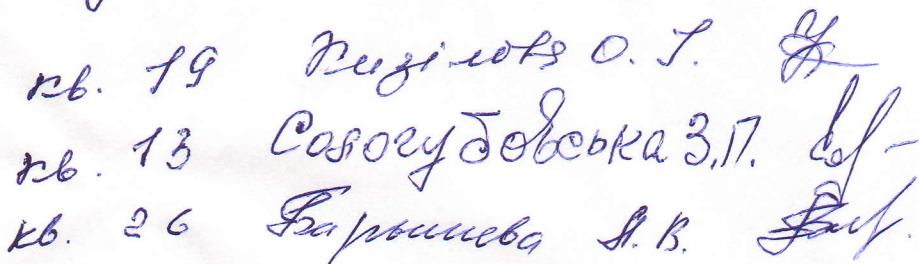 кв. 19 Кизілова О. І.
кв. 13 Сологубовська З.П.
кв. 26 Барышева А. В.